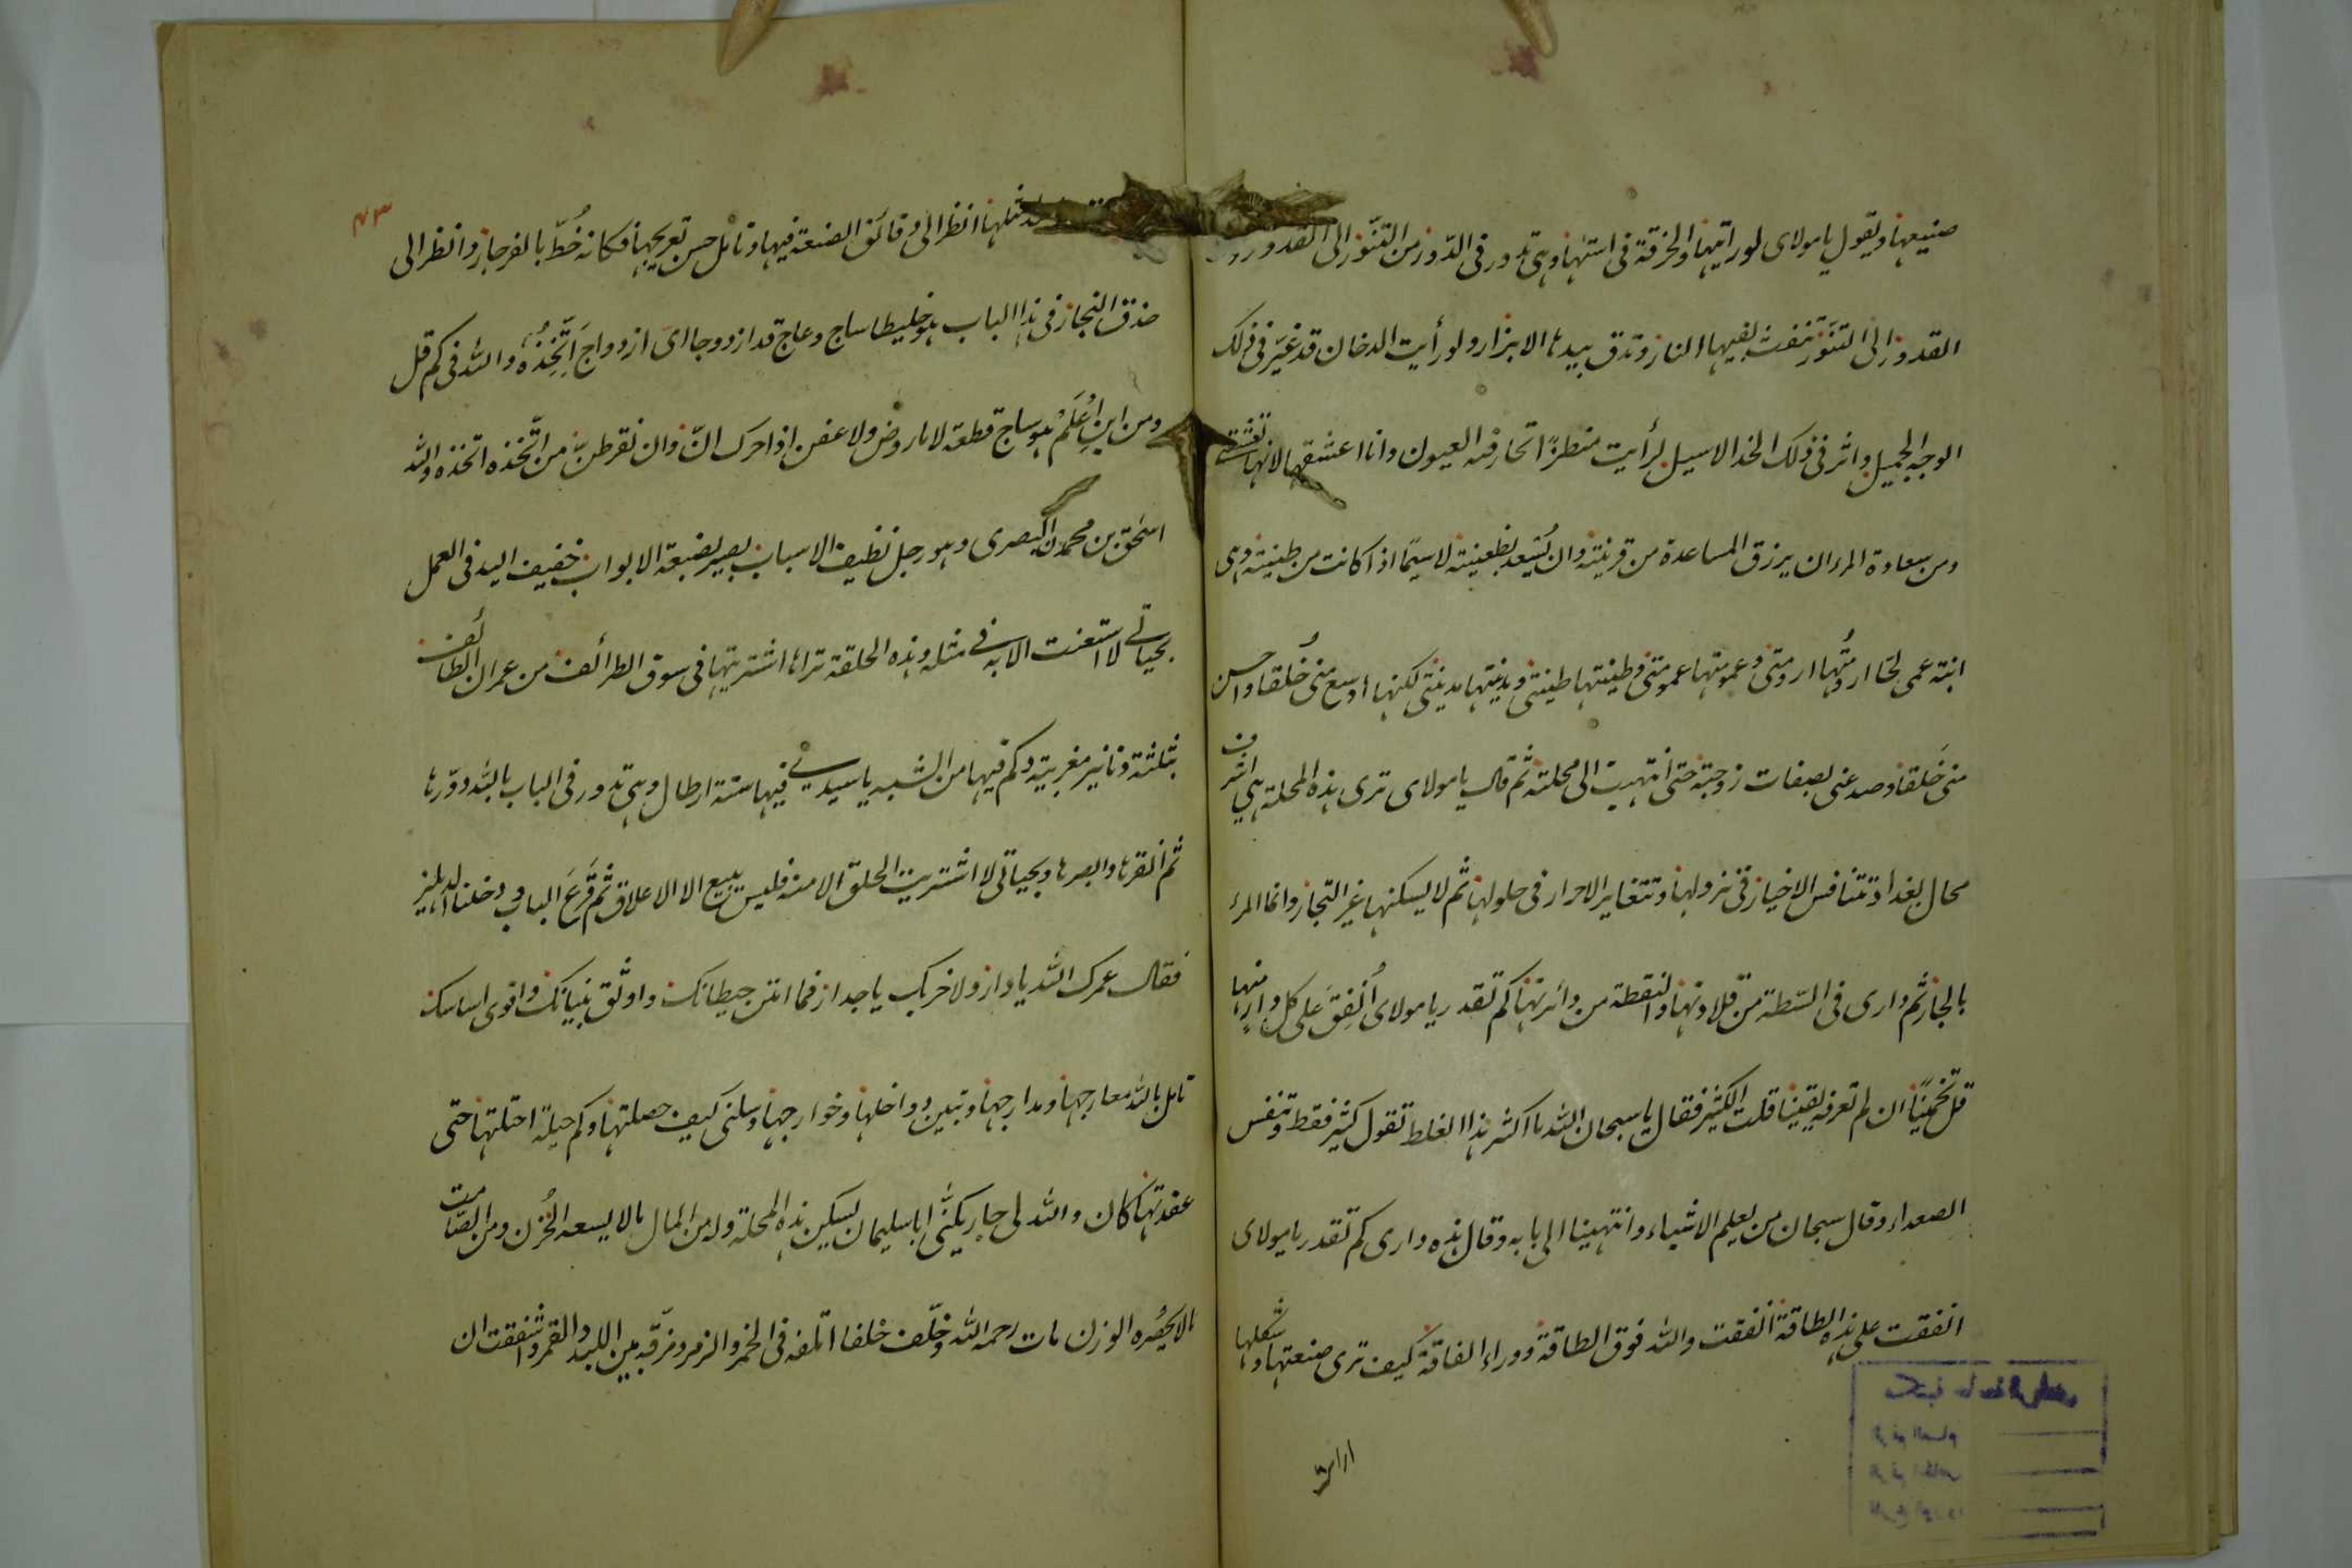 صنيعها ويقول يا مولاى لو رايتها والخرقة فى استها وهى تدور فى الدّور من التنّور الى القدور
القدور الى التنّور تنفث بفيها النار وتدق بيدها الابزار ولو رأيت الدخان قد غبّر فى ذلك
الوجه الجميل واثر فى ذلك الخد الاسيل لرأيت منظرًا تحار فيه العيون وانا اعشقها لانها تعشقنى
ومن سعادة المرء ان يرزق المساعدة من قرينته وان يُسْعد بظعينته لاسيمّا اذا كانت من طينته وهى
ابنة عمى لحّا ارومتُها ارومتى وعمومتها عمومتى وطينتها طينتى ومدينتها مدينتى لكنها اوسع منى خُلقا واحسن
منى خَلقا وصدعنى بصفات زوجته حتى انتهيت الى محلته ثم قال يا مولاى ترى هذه المحلة هى اشرف
محال بغداد تتنافس الاخيار فى نزولها وتتغاير الاحرار فى حلولها ثم لا يسكنها غير التجار وانما المرء
بالجار ثم دارى فى السّطة من قلادتها والنقطة من دائرتها كم تقدر يا مولاى اُنْفِقَ على كل دارٍ منها
قل تخمينًا ان لم تعرفه يقينا قلت الكثير فقال يا سبحان الله ما اكثر هذا الغلط تقول كثير فقط وتنفس
الصعداء وقال سبحان من يعلم الاشياء وانتهينا الى بابه وقال هذه دارى كم تقدر يا مولاى
انفقت على هذه الطاقة انفقت والله فوق الطاقة ووراء الفاقة كيف ترى صنعتها وشكلها
٤٣
مثلها انظر الى دقائق الصنعة فيها وتامل حسن تعريجها فكانه خُطّ بالفرجار وانظر الى
حذق النجار فى هذا الباب هو خليطا ساج وعاج قد ازدوجا اى ازدواج اَتّخِذُهُ والله فى كم قل
ومن اين اُعلَمُ هو ساج قطعة لا مارُوض ولا عفن اذا حرك انّ وان نقر طنّ من اتّخذه اتخذه والله
اسحٰق بن محمد البصرى وهو رجل نظيف الاسباب بصير بصنعة الابواب خفيف اليد فى العمل
بحياتى لا استعنت الا به فى مثله وهذه الحلقة تراها اشتريتها فى سوق الطرائف من عمران الطائفى
بثلثة دنانير مغربية وكم فيها من الشبه يا سيدى فيها ستة ارطال وهى تدور فى الباب بالله دوّرها
ثم انقرها وابصرها وبحياتى لا اشتريت الحلق الا منه فليس يبيع الا الاعلاق ثم قَرَعَ الباب ودخلنا الدهليز
فقال عمرك الله يا دار ولا خربك يا جدار فما امتن حيطانك واوثق بنيانك واقوى اساسك
تامل بالله معارجها ومدارجها وتبين دواخلها وخوارجها وسلنى كيف حصلتها وكم حيلة احتلتها حتى
عقدتها كان والله لى جار يكنّى ابا سليمان يسكن هذه المحلة وله من المال ما لا يسعه الخُزن ومن الصامت
ما لا يحصُره الوزن مات رحمه الله وخلّف خلفا اتلفه فى الخمر والزمر ومزقه بين اللبد والقمر واشفقت ان
مكتبة جامعة الرياض